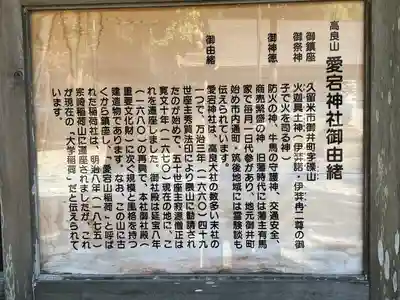 高良山 愛宕神社御由緒
御鎮座 久留米市御井町字隈山
御祭神 火迦具土神(伊弉諾・伊弉冉二尊の御
子で火を司る神)
御神徳 防火の神、牛馬の守護神、交通安全、
商売繁盛の神 旧藩時代には藩主有馬
家で毎月一日代参があり、地元御井町
始め市内通町・筑後地域には霊験談も
伝えられています。
御由緒 愛宕神社は、高良大社の数多い末社の
一つで、万治三年(一六六〇)四十九
世座主秀賢法印により隈山に勧請され
たのが始めで、五十世座主寂源僧正は
寛文十年(一六七〇)現在の地に、こ
れを遷座しました。御社殿は延宝八年
(一六八〇)の再建で、本社御社殿(
重要文化財)に次ぐ規模と風格を持つ
建造物であります。なお、この山に古
くから鎮座し、「愛宕山稲荷」と呼ば
れた稲荷社は、明治八年(一八七五)
宗崎稲荷山に遷座されましたが、これ
が現在の「大学稲荷」だと伝えられて
います。